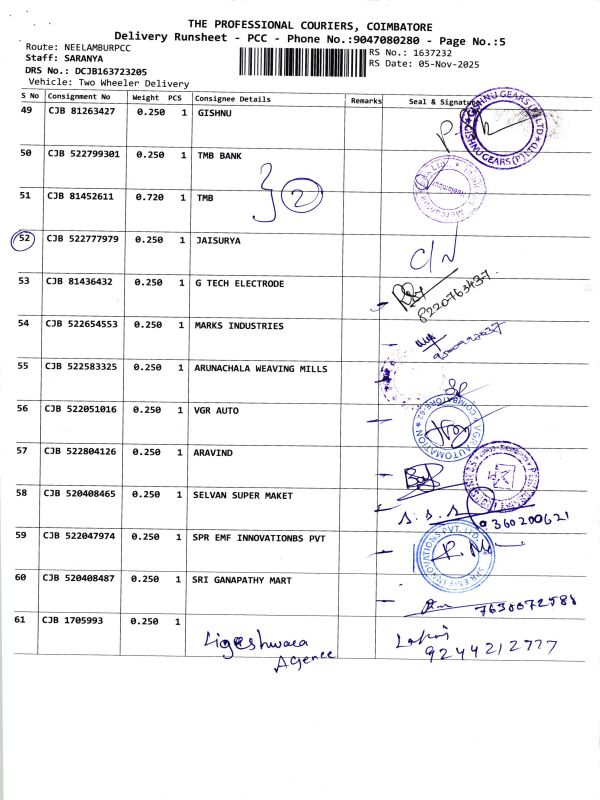 THE PROFESSIONAL COURIERS, COIMBATORE
Delivery Runsheet - PCC - Phone No.:9047080280 - Page No.:5
Route: NEELAMBURPCC
Staff: SARANYA
DRS No.: DCJB163723205
Vehicle: Two Wheeler Delivery
RS No.: 1637232
RS Date: 05-Nov-2025
S No Consignment No Weight PCS Consignee Details Remarks Seal & Signature
49 CJB 81263427 0.250 1 GISHNU
GISHNU GEARS (P) LTD
50 CJB 522799301 0.250 1 TMB BANK
51 CJB 81452611 0.720 1 TMB
2
52 CJB 522777979 0.250 1 JAISURYA C/N
53 CJB 81436432 0.250 1 G TECH ELECTRODE
8220763437
54 CJB 522654553 0.250 1 MARKS INDUSTRIES
55 CJB 522583325 0.250 1 ARUNACHALA WEAVING MILLS
56 CJB 522051016 0.250 1 VGR AUTO
VGR AUTOMATION
57 CJB 522804126 0.250 1 ARAVIND
58 CJB 520408465 0.250 1 SELVAN SUPER MAKET
S. S. S
9360200621
59 CJB 522047974 0.250 1 SPR EMF INNOVATIONBS PVT
SPR EMF INNOVATIONS PVT. LTD.
60 CJB 520408487 0.250 1 SRI GANAPATHY MART
61 CJB 1705993 0.250 1
Agence
9244212777